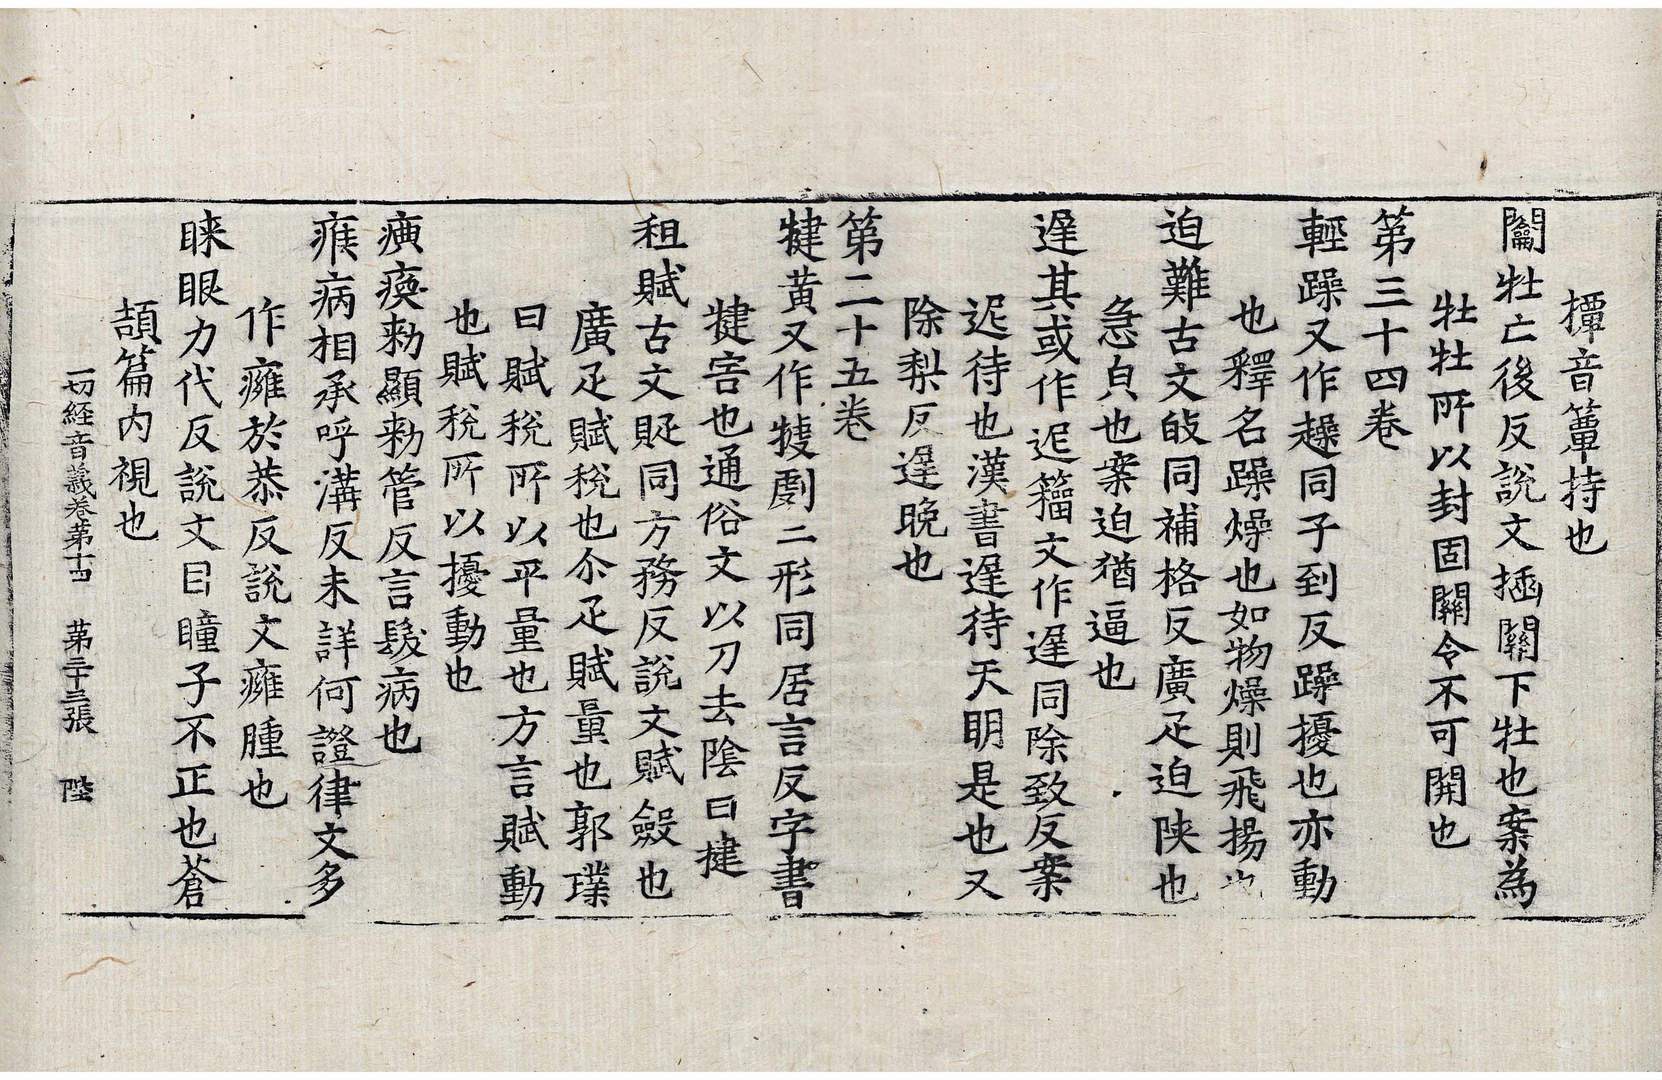 撢音簞持也
闟牡亡後反說文插關下牡也案為
牡牡所以封固關令不可開也
第三十四卷
輕躁又作趮同子到反躁擾也亦動
也釋名躁燥也如物燥則飛揚也
迫難古文敀同補格反廣疋迫陜也
急皃也案迫猶逼也
遟其或作迡籀文作遟同除致反案
迡待也漢書遟待天明是也又
除梨反遟晚也
第二十五卷
犍黃又作㹇劇二形同居言反字書
犍害也通俗文以刀去陰曰揵
租賦古文賍同方務反說文賦斂也
廣疋賦稅也尒疋賦量也郭璞
曰賦稅所以平量也方言賦動
也賦稅所以擾動也
癀瘓勑顯勑管反言鬆病也
瘊病相承呼溝反未詳何證律文多
作癰於恭反說文癰腫也
睞眼力代反說文目瞳子不正也蒼
頡篇內視也
一切経音義卷第十四　第三十三張　陛